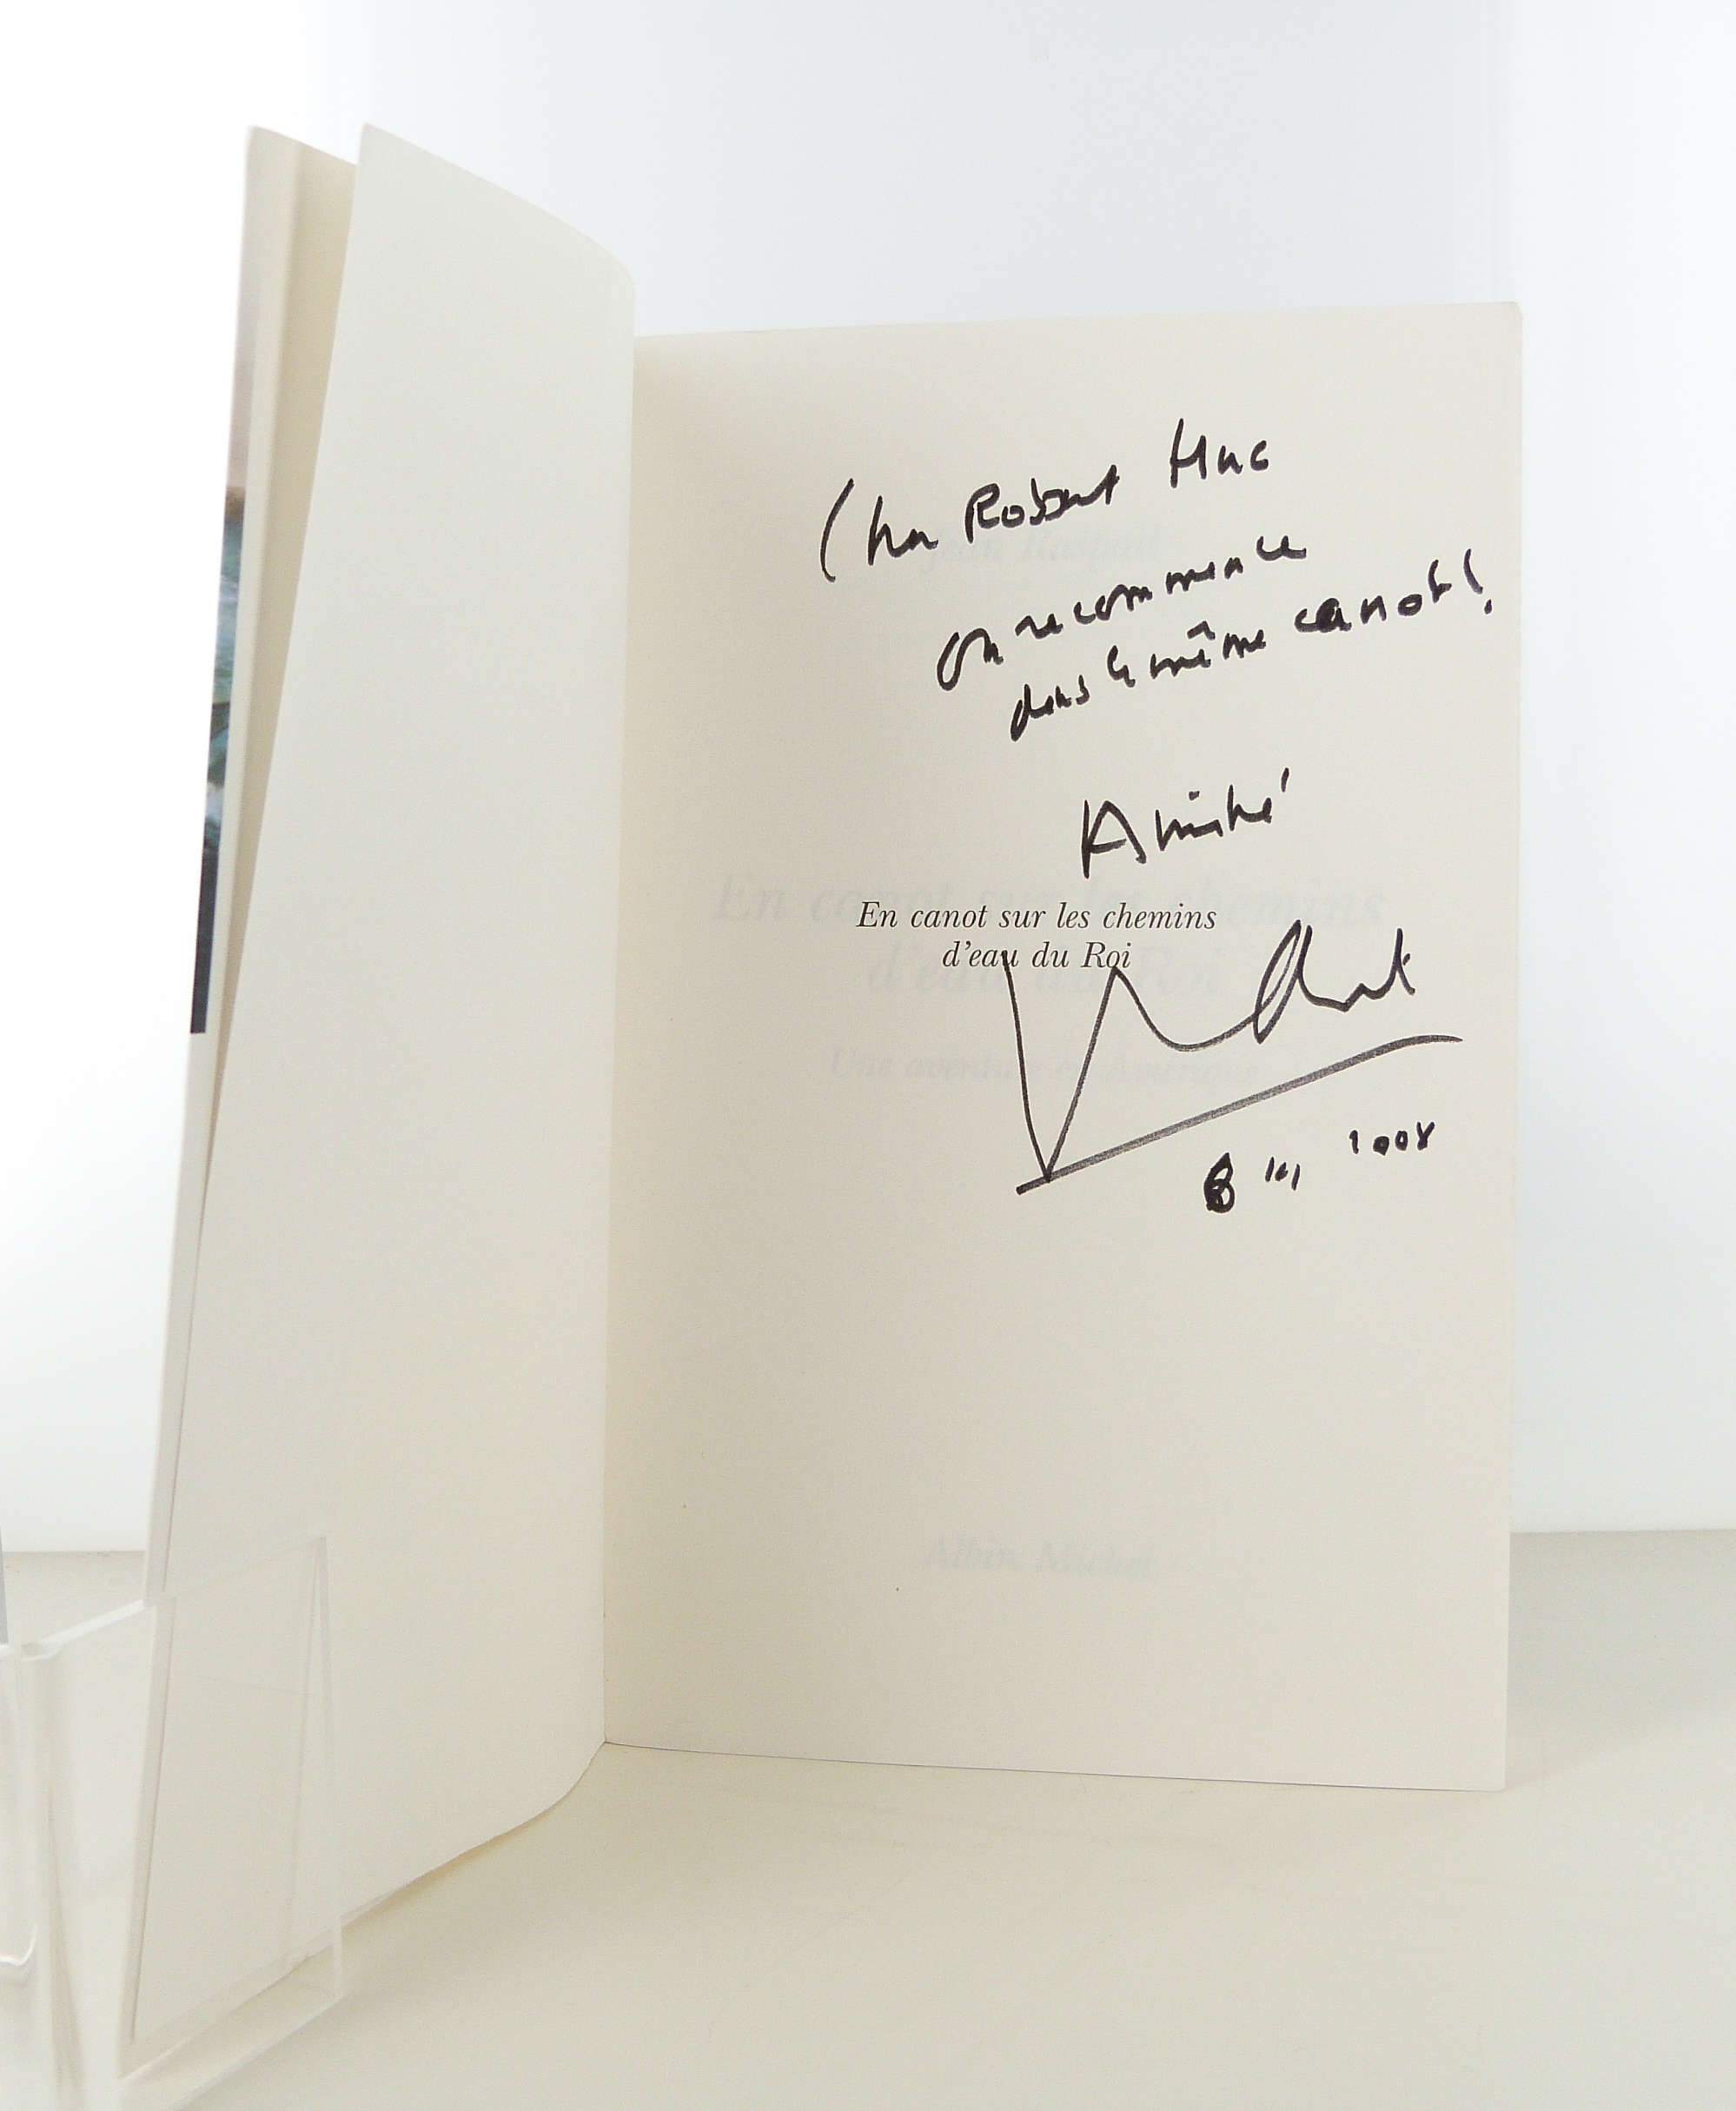 Cher Robert Huc
on recommence
dans le même canot !
Amitié
En canot sur les chemins
d'eau du Roi
2008
Jean Raspail
En canot sur les chemins
d'eau du Roi
Une aventure en Amérique
Albin Michel